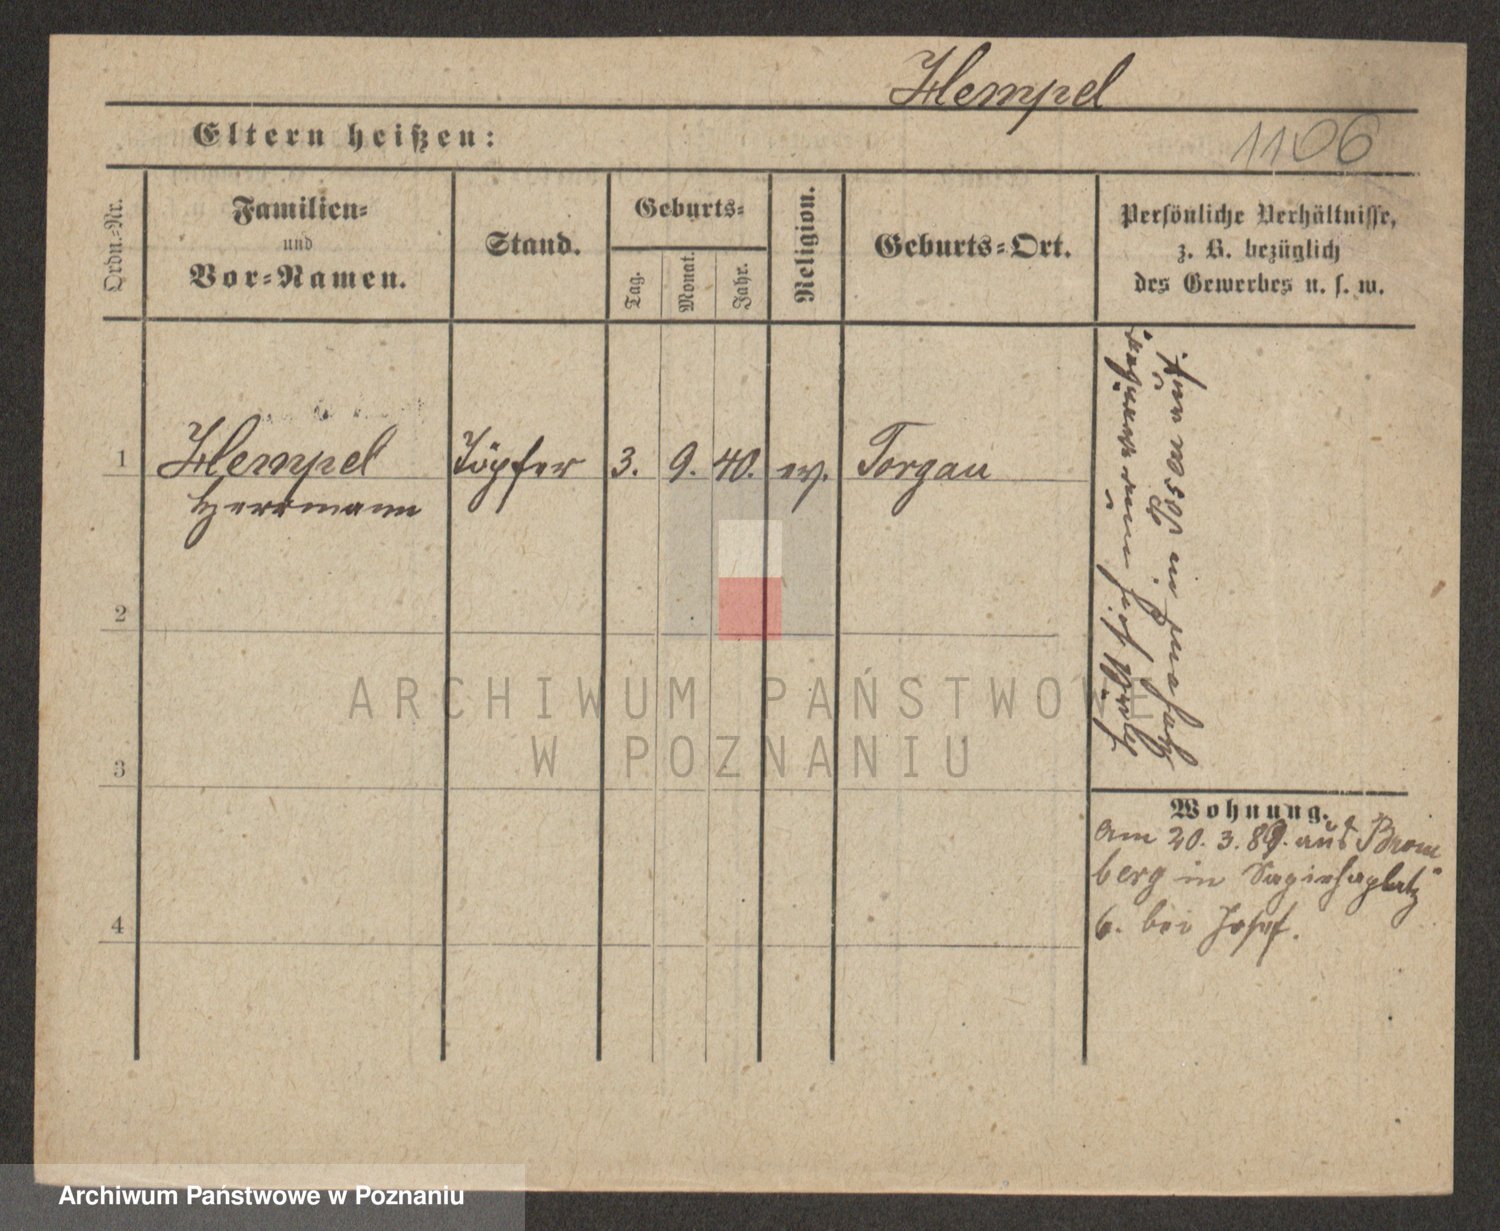 Hempel
1106
Eltern heißen:
Ordn.-Nr.
Familien-
und
Vor-Namen.
Stand.
Geburts-
Tag.
Monat.
Jahr.
Religion.
Geburts-Ort.
Persönliche Verhältnisse,
z. B. bezüglich
des Gewerbes u. s. w.
1 Hempel Töpfer 3. 9. 40. ev. Torgau
Herrmann
2
3
4
Wohnung.
am 20. 3. 89. aus Brom
berg in Sapiehaplatz
6. bei Josef.
ARCHIWUM PAŃSTWOWE
W POZNANIU
Archiwum Państwowe w Poznaniu